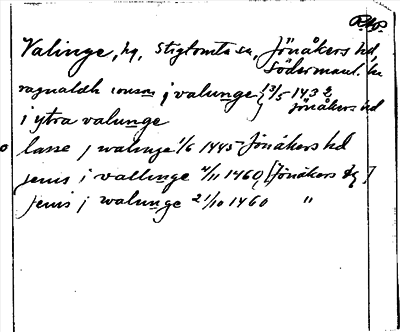 Valinge, hg, Stigtomta sn, Jönåkers hd,
Södermanl. län
ragnaldh ionsson j valunge 13/5 1432
Jönåkers hd
i ytra valunge
lasse j walunge 1/6 1445 Jönåkers hd
jenis i vallunge 4/11 1460, [Jönåkers hd]
jenis j walunge 21/10 1460 "